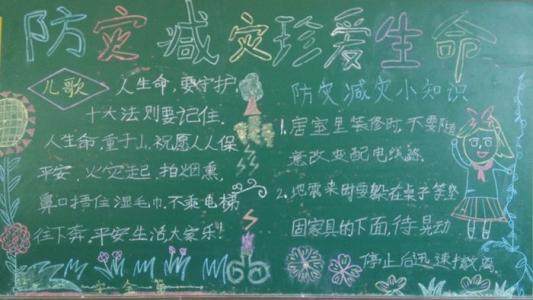 防灾减灾珍爱生命
儿歌
人生命,要守护,
十大法则要记住.
人生命重于山,祝愿人人保
平安.火灾起,拍烟熏,
鼻口捂住湿毛巾.不乘电梯
往下奔.平安生活大家乐!
防灾减灾小知识
1.居室里装修时,不要随
意改变配电线路.
2.地震来时要躲在桌子等坚
固家具的下面,待晃动
停止后迅速撤离.